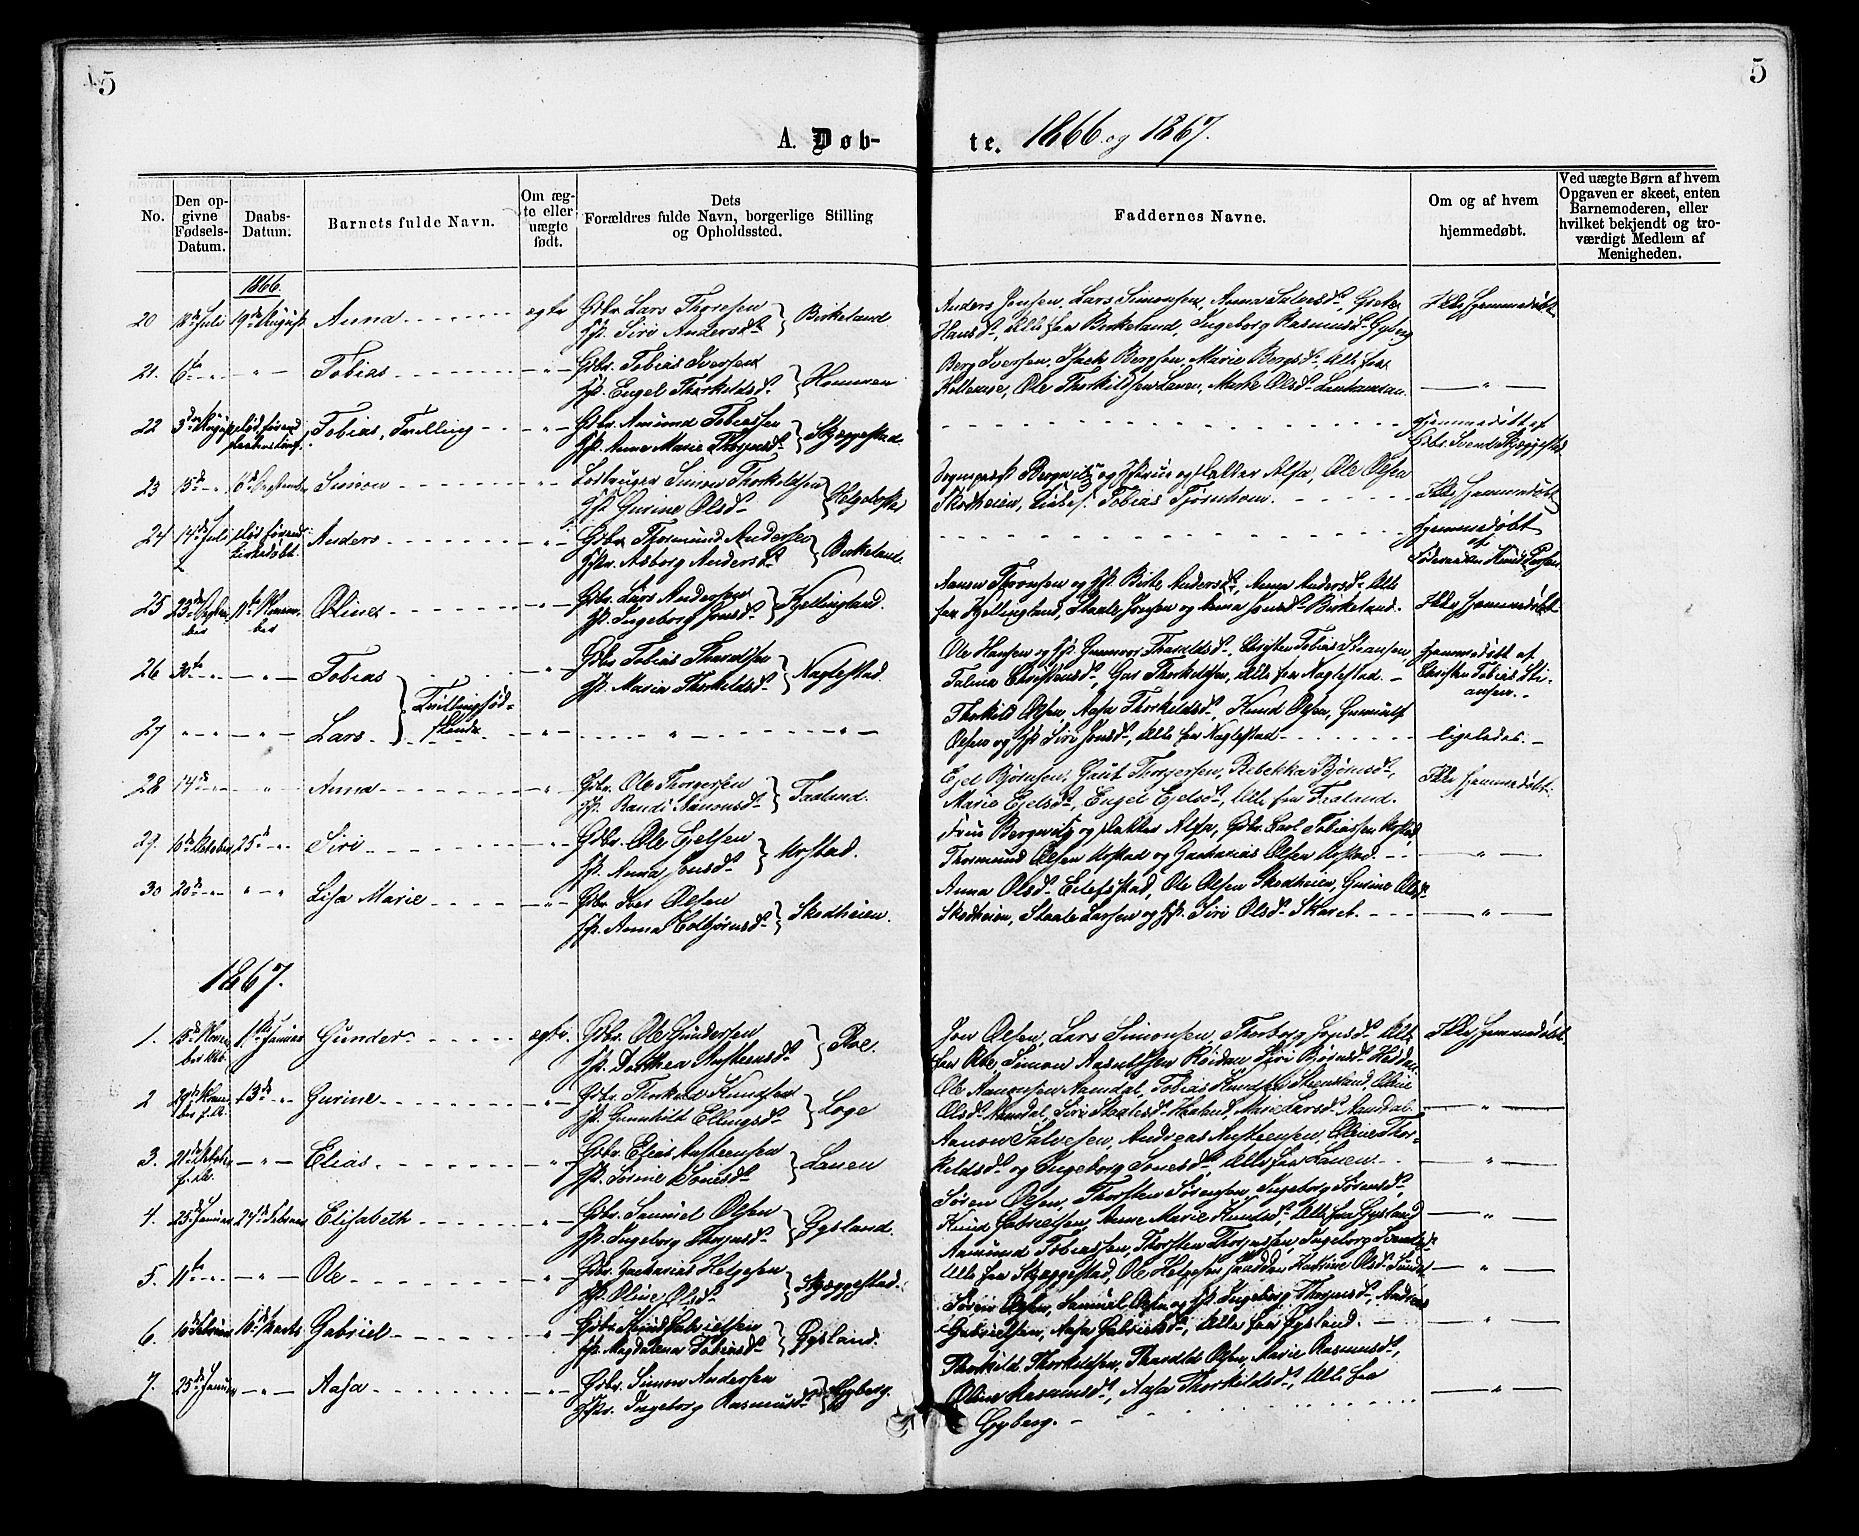 5
5
A. Døb-
te. 1866 og 1867.
No.
Den op-
givne
Fødsels-
Datum.
Daabs-
Datum.
Barnets fulde Navn.
Om æg-
te eller
uægte
født.
Dets
Forældres fulde Navn, borgerlige Stilling
og Opholdssted.
Faddernes Navne.
Om og af hvem
hjemmedøbt.
Ved uægte Børn af hvem
Opgaven er skeet, enten
Barnemoderen, eller
hvilket bekjendt og tro-
værdigt Medlem af
Menigheden.
1866.
20 18de Juli 19de August Anna ægte Gbr. Lars Thoresen
Hst. Siri Andersd. Birkeland
Anders Jensen, Lars Simonsen, Anna Salvesd., Grete
Hansd., Alle fra Birkeland, Ingeborg Rasmusd. Gyberg
Ikke hjemmedøbt
21. 6te " " Tobias " Gbr. Tobias Iversen
Hst. Engel Thorkeldsd. Hommen
Berg Iversen, Isach Bergsen, Marie Bergsd. Alle fra
Ole Thorkildsen Lauen, Marthe Olsd.
"
22 3die August død førend
Tobias, Tvilling " Gbr. Amund Tobiassen
Hst. Anne Marie Thorjusd. Skjæggestad
Hjemmedøbt af
Gbr. Svend Skjæggestad
23 15de " 6te September Simon " Simon Thorkeldsen
Hst. Gurine Olsd. Helgebostad
Bergwitz og Frue og Datter Alfa, Ole Olsen
Skodheien, Tobias Tjørnhom.
Ikke hjemmedøbt
24 14de Juli død førend
kirkedøbt. Anders " Gbr. Thormund Andersen
Hst. Asborg Andersd. Birkeland
Hjemmedøbt
af
25 23de Septem-
ber 11te Novem-
ber Oline " Gbr. Lars Andersen
Hst. Ingeborg Jensd. Kjellingland.
Aanen Thronsen og Hst. Birte Andersd., Anna Andersd. Alle
fra Kjellingland, Staale Jensen og Anna Jonsd. Birkeland.
Ikke hjemmedøbt
26 30te " " Tobias " Gbr. Tobias Tharaldsen
Hst. Maria Thorkeldsd. Naglestad.
Tvillingsød-
skende
Ole Hansen og Hst. Gunvor Tharaldsd., Christen Tobias Stiansen
Talma Christensd., Gus Thorkelsen, Alle fra Naglestad
Hjemmedøbt af
Christen Tobias Sti-
ansen.
27 " " " Lars " " "
Thorkild Olsen, Aasa Thorkeldsd., Knud Olsen, Gunulf
Olsen og Hst. Siri Jonsd., Alle fra Naglestad
ligeledes.
28 14de " " Anna " Gbr. Ole Thorgersen
Hst. Randi Simonsd. Fraland.
Ejel Bjørnsen, Gaut Thorgersen, Rebekka Bjørnsd.,
Marie Ejelsd., Engel Ejelsd., Alle fra Fraland.
Ikke hjemmedøbt.
29. 16de October 25de " Siri " Gbr. Ole Ejelsen
Hst. Anna Jonsd. Mostad.
Frue Bergwitz og Datter Alfa, Gbr. Carl Tobiassen Mostad,
Thormund Olsen Mostad og Zacharias Olsen Mostad.
"
30 20de " " " Lisa Marie " Gbr. Iver Olsen
Hst. Anna Colbjørnsd. Skodheien.
Anna Olsd. Eilefsstad, Ole Olsen Skodheien, Gurine Olsd.
Skodheien, Staale Larsen og Hst. Siri Olsd. Skaret.
"
1867.
1. 15de Novem-
ber 1ste Januar Gunder ægte. Gbr. Ole Gundersen
Hst. Dorthea Austensd. Roe.
Jon Olsen, Lars Simonsen, Thorborg Jonsd. Alle
fra Roe, Simon Røidan, Siri Bjørnsd.
Ikke hjemmedøbt.
2 29de Novem-
ber 13de " Gurine " Gbr. Thorkeld Knudsen
Hst. Gunhild Ellingsd. Loge
Ole Aanonsen Aamdal, Tobias Knudsen Steensland, Oline
Olsd. Aamdal, Siri Staalesd. Haaland, Marie Larsd. Aamdal.
"
3. 21de October
" Elias " Gbr. Elias Austensen
Hst. Sørine Tønesd. Lauen
Aanon Salvesen, Andreas Austensen, Oline Thor-
keldsd. og Ingeborg Tonesd., Alle fra Lauen.
"
4. 25de Januar 24de Februar Elisabeth " Gbr. Samuel Olsen
Hst. Ingeborg Thorjusd. Gysland.
Søren Olsen, Thorsten Sørensen, Ingeborg Sørensd.,
Knud Gabrielsen, Anne Marie Knudsd., Alle fra Gysland
"
5. 11te " " Ole " Gbr. Zacharias Helgesen
Hst. Oline Olsd. Skjæggestad.
Aamund Tobiassen, Thorsten Thorjussen, Ingeborg Svendsd.
Alle fra Skjæggestad, Ole Helgesen
"
6. 10de Februar 10de Marts Gabriel " Gbr. Knud Gabrielsen
Hst. Magdalena Tobiasd. Gysland.
Søren Olsen, Samuel Olsen og Hst. Ingeborg Thorjusd., Andreas
Gabrielsen, Aasa Gabrielsd., Alle fra Gysland.
"
7. 25de Januar " Aasa " Gbr. Simon Andersen
Hst. Ingeborg Rasmusd. Gyberg.
Thorkild Thorkeldsen, Tharald Olsen, Marie Rasmusd.,
Oline Rasmusd., Aasa Thorkildsd., Alle fra
Gyberg.
"